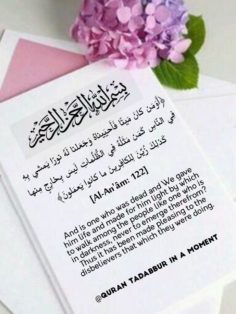 بسم الله الرحمن الرحيم
﴿أَوَمَن كَانَ مَيْتًا فَأَحْيَيْنَاهُ وَجَعَلْنَا لَهُ نُورًا يَمْشِي بِهِ
فِي النَّاسِ كَمَن مَّثَلُهُ فِي الظُّلُمَاتِ لَيْسَ بِخَارِجٍ مِّنْهَا
كَذَٰلِكَ زُيِّنَ لِلْكَافِرِينَ مَا كَانُوا يَعْمَلُونَ﴾
[Al-An'ām: 122]
And is one who was dead and We gave
him life and made for him light by which
to walk among the people like one who is
in darkness, never to emerge therefrom?
Thus it has been made pleasing to the
disbelievers that which they were doing.
@QURAN TADABBUR IN A MOMENT